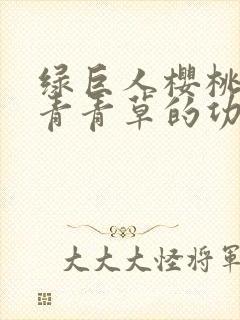 绿巨人樱桃
青青草的功
大大大怪将軍